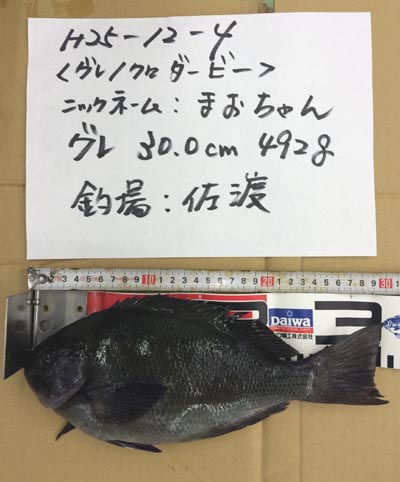 H25-12-4
<グレ/クロダービー>
ニックネーム:まおちゃん
グレ 30.0cm 492g
釣場:佐渡
1 2 3 4 5 6 7 8 9 10 1 2 3 4 5 6 7 8 9 20 1 2 3 4 5 6 7 8 9 30 1
Daiwa
精工株式会社